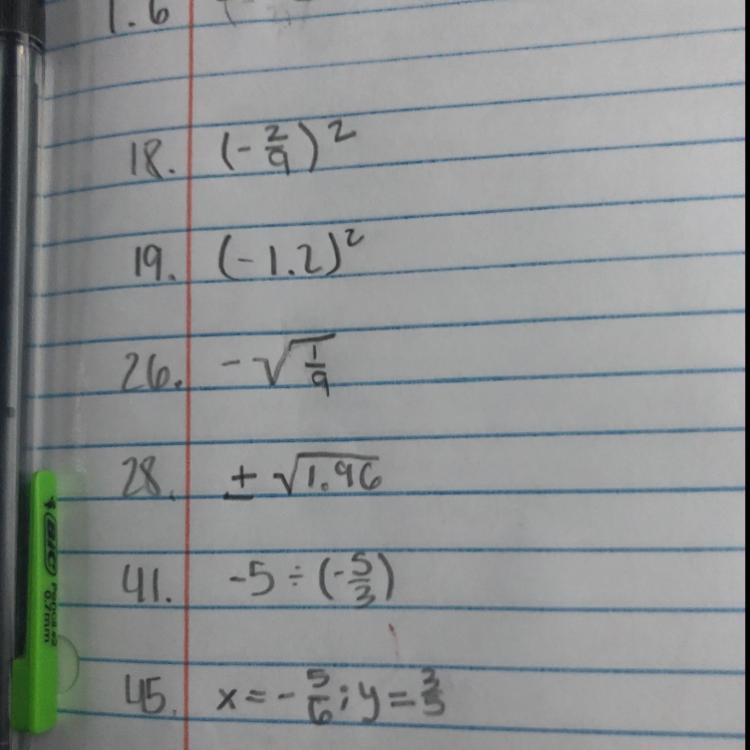 1.6
18. (-2/9)²
19. (-1.2)²
26. -√1/9
28. ±√1.96
41. -5 ÷ (-5/3)
45. x = -5/6; y = 3/5
BIC
0.7mm